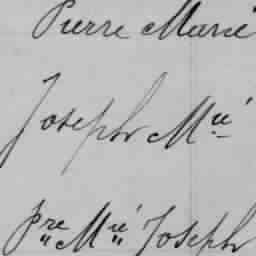 Pierre Marie
Joseph Mie
pre Mie Joseph